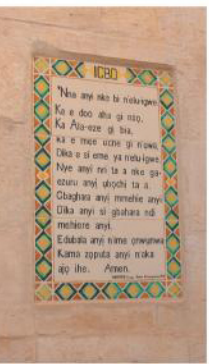 IGBO
"Nna anyi nke bi n'elu-igwe,
Ka e doo aha gi nsọ,
Ka Ala-eze gi bia,
Ka e mee uche gi n'ụwa,
Dika e si eme ya n'elu-igwe.
Nye anyi nri ta a nke ga-
ezuru anyi ụbọchi ta a.
Gbaghara anyi mmehie anyi
Dika anyi si gbahara ndi
mehiere anyi.
Edubala anyi n'ime ọnwụnwa
Kama zọpụta anyi n'aka
ajọ ihe. Amen.